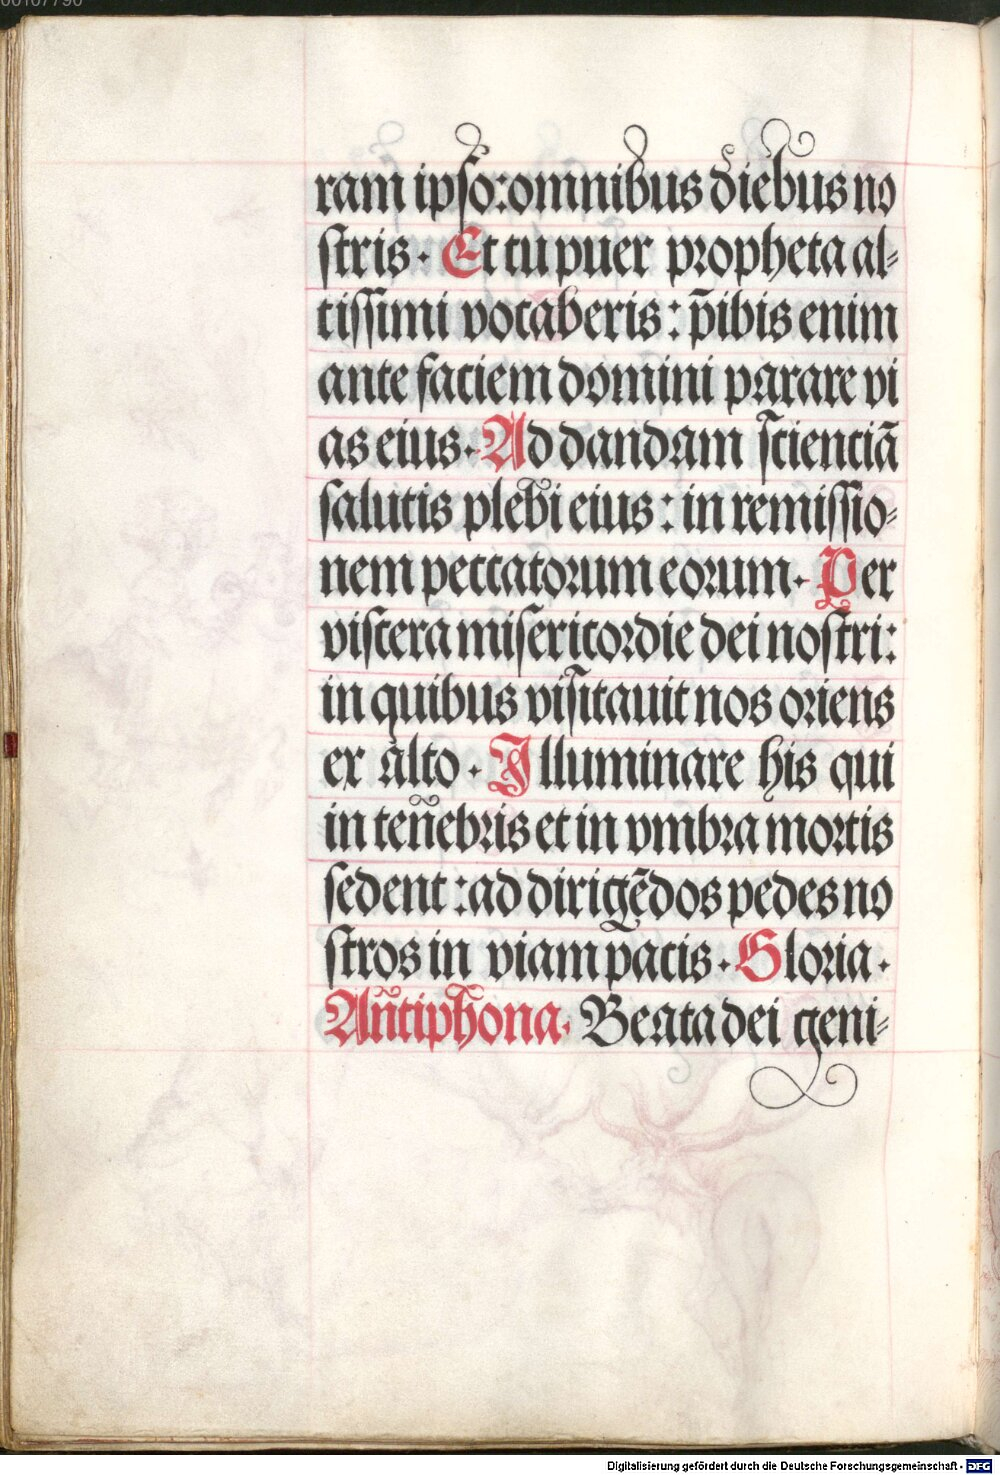 00107790
ram ipso: omnibus diebus no
stris. Et tu puer propheta al-
tissimi vocaberis: p̄ibis enim
ante faciem domini parare vi
as eius. Ad dandam scienciā
salutis plebi eius: in remissio-
nem peccatorum eorum. Per
viscera misericordie dei nostri:
in quibus visitauit nos oriens
ex alto. Illuminare his qui
in tenebris et in vmbra mortis
sedent: ad dirigēdos pedes no
stros in viam pacis. Gloria.
Antiphona. Beata dei geni-
Digitalisierung gefördert durch die Deutsche Forschungsgemeinschaft - DFG